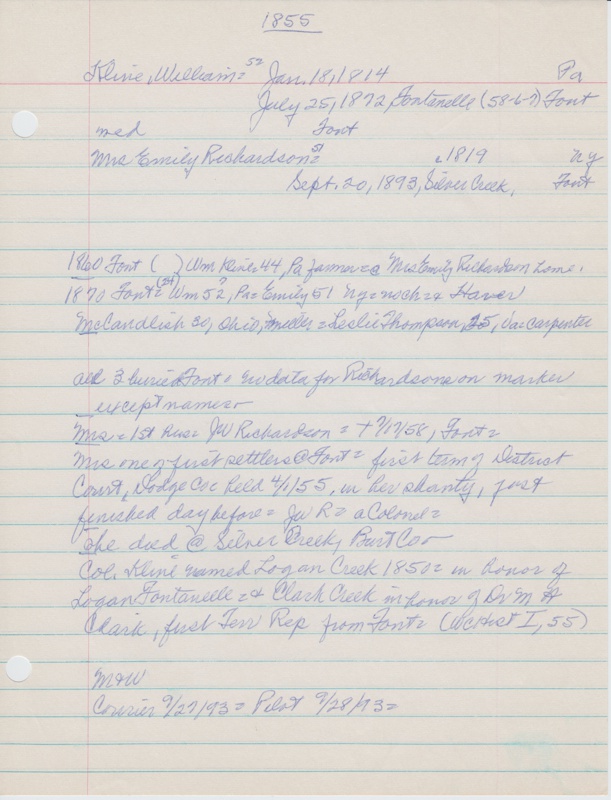 1855
Kline, William = 52 Jan. 18, 1814 Pa
July 25, 1872 Fontanelle (58-6-7) Font
med Font
Mrs Emily Richardson = 51 c. 1819 Ny
Sept. 20, 1893, Silver Creek, Font
1860 Font ( ) Wm Kline = 44, Pa farmer = @ Mrs Emily Richardson home.
1870 Font = Wm 52, Pa = Emily 51 Ny = no ch = &
McCandlish 30, Ohio, = Leslie Thompson, 25, Va = carpenter
all 3 buried Font = no data for Richardsons on marker
except names =
Mrs = 1st Hus = JW Richardson = + /58, Font =
Mrs one of first settlers @ Font = first term of District
Court, Dodge Co = held 4/1/55, in her shanty, just
finished day before = JW R = a Colonel =
She died @ Silver Creek, Burt Co =
Col. Kline named Logan Creek 1850 = in honor of
Logan Fontanelle = & Clark Creek in honor of Dr M H
Clark, first Terr Rep from Font = (WCHist I, 55)
M & W
Courier 9/27/93 = Pilot 9/28/93 =